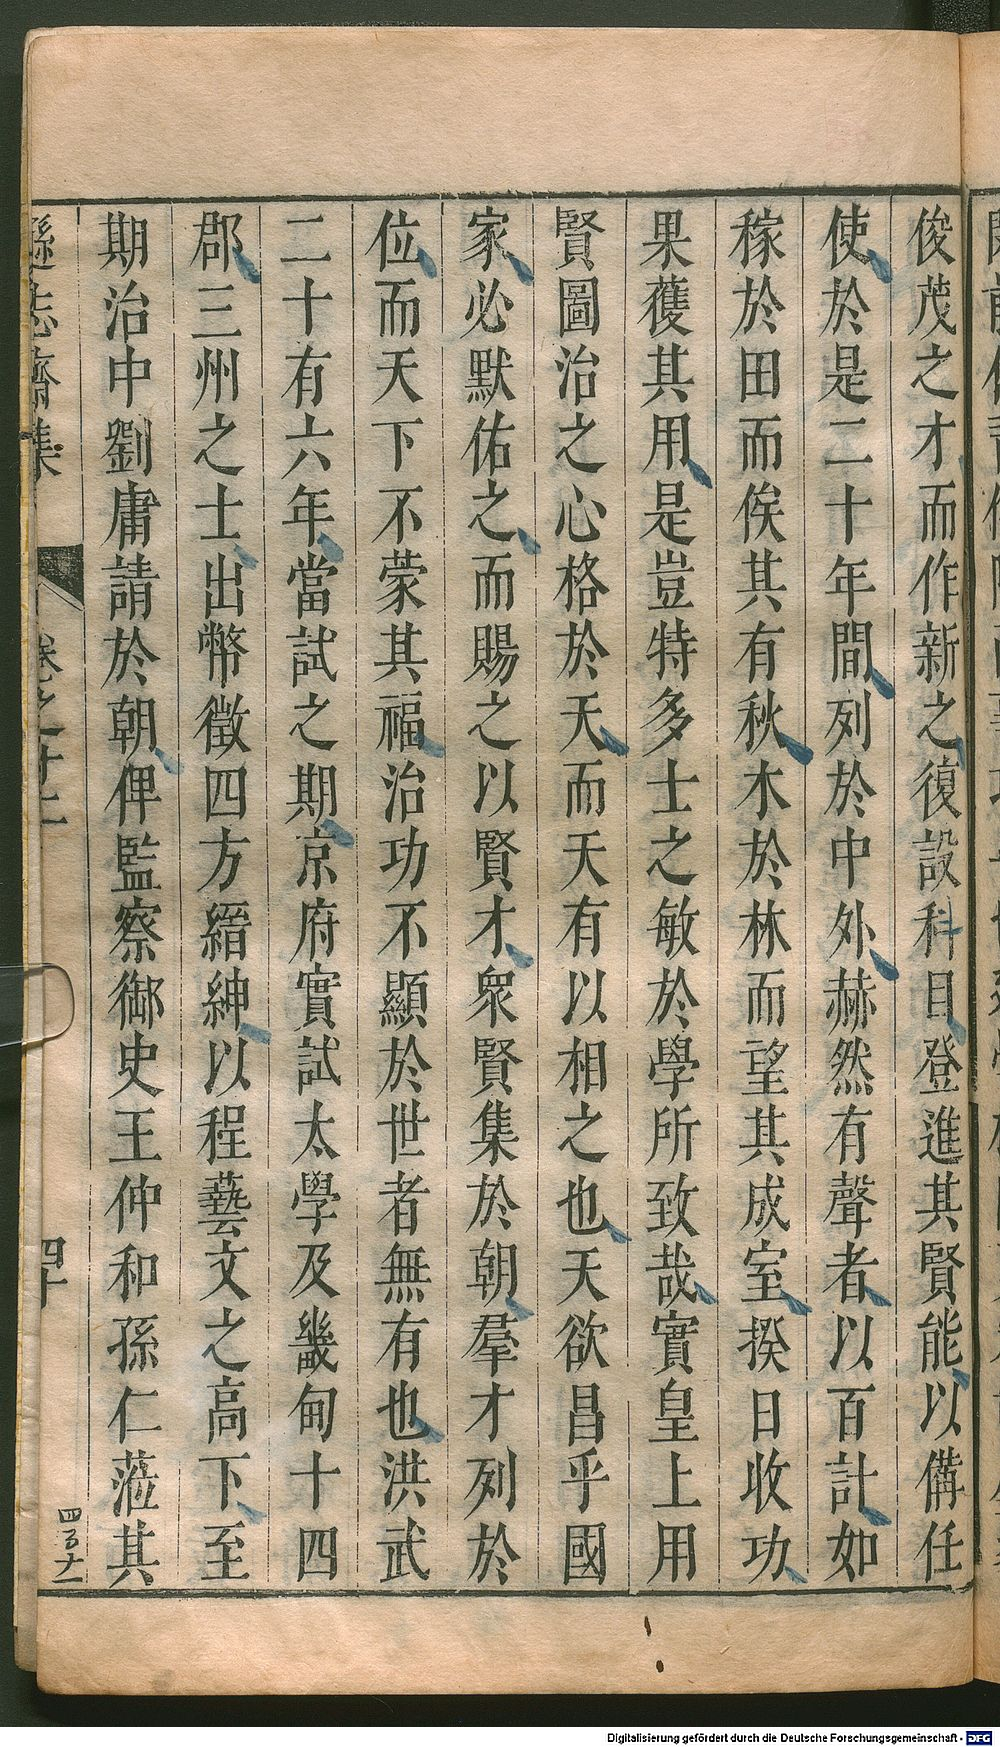 俊茂之才而作新之復設科目登進其賢能以備任
使於是二十年間列於中外赫然有聲者以百計如
稼於田而俟其有秋木於林而望其成室揆日收功
果獲其用是豈特多士之敏於學所致哉實皇上用
賢圖治之心格於天而天有以相之也天欲昌乎國
家必默佑之而賜之以賢才衆賢集於朝羣才列於
位而天下不蒙其福治功不顯於世者無有也洪武
二十有六年當試之期京府實試太學及畿甸十四
郡三州之士出幣徵四方縉紳以程藝文之高下至
期治中劉庸請於朝俾監察御史王仲和孫仁蒞其
遜志齋集 卷之十二 四十
Digitalisierung gefördert durch die Deutsche Forschungsgemeinschaft - DFG